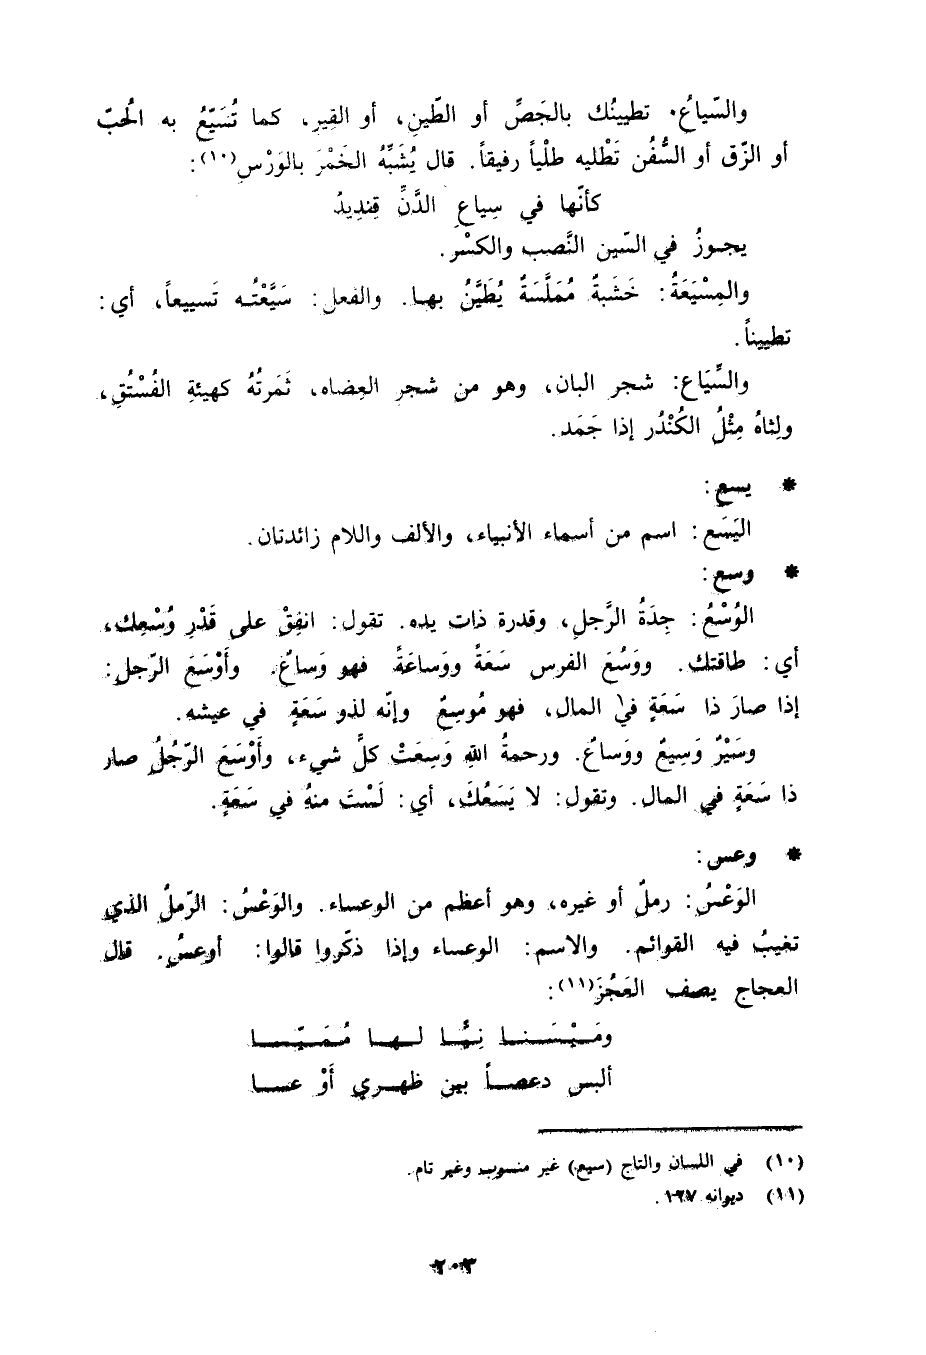 والسّياعُ٠ تطيينُك بالجَصِّ أو الطّينِ، أو القِيرِ، كما تُسَيّعُ به الحُبّ
أو الزّق أو السُّفُن تَطْليه طلْياً رفيقاً. قال يُشَبِّهُ الخَمْرَ بالوَرْسِ(١٠):
كأنّها في سِياعِ الدَّنِّ قِنديدُ
يجوزُ في السّين النَّصب والكسْر.
والمِسْيَعَةُ: خَشَبةٌ مُمَلَّسَةٌ يُطَيَّنُ بهـا. والفعل: سَيَّعْتُـه تَسييعاً، أي:
تطييناً.
والسِّيَاع: شجر البان، وهو من شجر العِضاه، ثَمَرتُهُ كهيئةِ الفُسْتُقِ،
ولِثاهُ مِثْلُ الكُنْدُر إذا جَمَد.
* يسع:
اليَسَع: اسم من أسماء الأنبياء، والألف واللام زائدتان.
* وسع:
الوُسْعُ: جِدَةُ الرَّجلِ، وقدرة ذات يده. تقول: انفِقْ على قَدْرِ وُسْعِك،
أي: طاقتك. ووَسُعَ الفرس سَعَةً ووَساعَةً فهو وَساعٌ. وأَوْسَعَ الرّجل:
إذا صارَ ذا سَعَةٍ في المال، فهو مُوسِعٌ وإنّه لذو سَعَةٍ في عيشه.
وسَيْرٌ وَسِيعٌ ووَساعٌ. ورحمةُ اللهِ وَسِعَتْ كلَّ شيء، وأَوْسَعَ الرّجُلُ صار
ذا سَعَةٍ في المال. وتقول: لا يَسَعُكَ، أي: لَسْتَ منهُ في سَعَةٍ.
* وعس:
الوَعْسُ: رملٌ أو غيره، وهو أعظم من الوعساء. والوَعْسُ: الرّملُ الذي
تغيبُ فيه القوائم. والاسم: الوعساء وإذا ذكّروا قالوا: أوعسُ. قال
العجاج يصف العَجُزَ(١١):
ومَـيْـسَـنـا نِـيًّـا لـهـا مُـمَـيّـسـا
ألبس دعصـاً بين ظهـري أَوْ عسـا
(١٠) في اللسان والتاج (سيع) غير منسوب وغير تام.
(١١) ديوانه ١٢٧.
٢٠٣